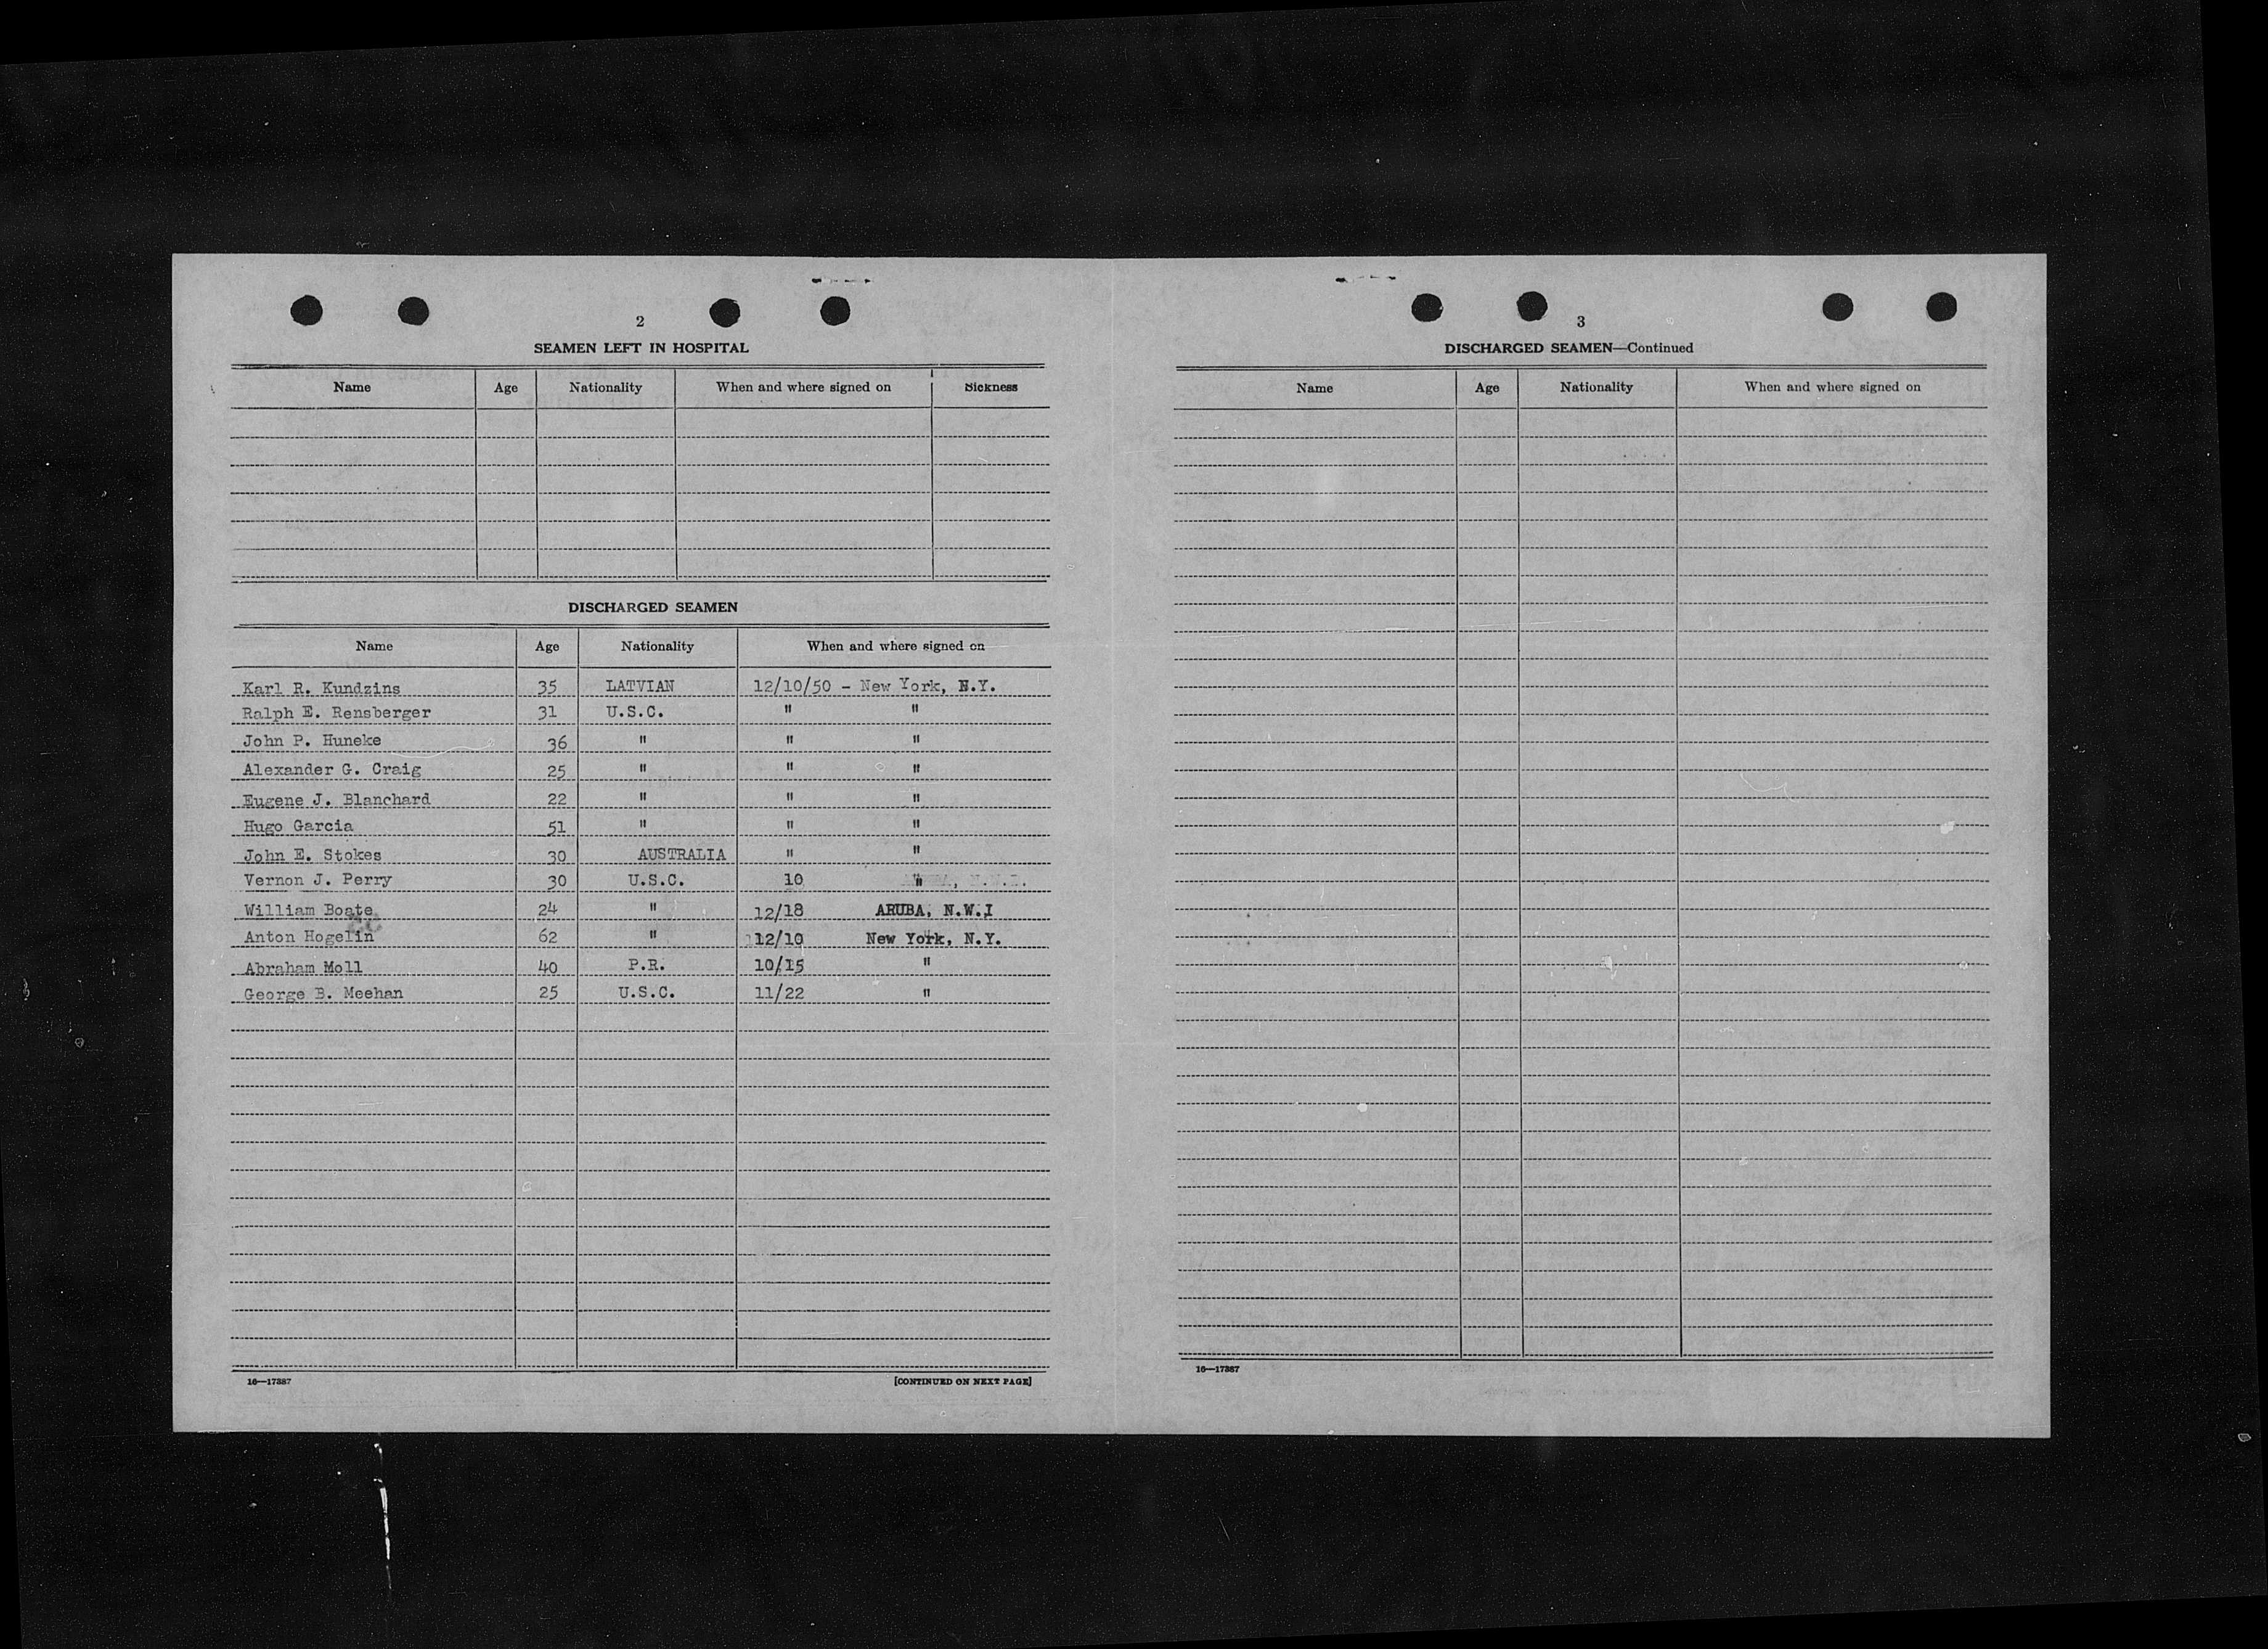 2
SEAMEN LEFT IN HOSPITAL
Name Age Nationality When and where signed on Sickness
DISCHARGED SEAMEN
Name Age Nationality When and where signed on
Karl R. Kundzins 35 LATVIAN 12/10/50 - New York, N.Y.
Ralph E. Rensberger 31 U.S.C. " "
John P. Huneke 36 " " "
Alexander G. Craig 25 " " "
Eugene J. Blanchard 22 " " "
Hugo Garcia 51 " " "
John E. Stokes 30 AUSTRALIA " "
Vernon J. Perry 30 U.S.C. 10 "
William Boate 24 " 12/18 ARUBA, N.W.I
Anton Hogelin 62 " 12/10 New York, N.Y.
Abraham Moll 40 P.R. 10/15 "
George B. Meehan 25 U.S.C. 11/22 "
16—17387
[CONTINUED ON NEXT PAGE]
3
DISCHARGED SEAMEN—Continued
Name Age Nationality When and where signed on
16—17387